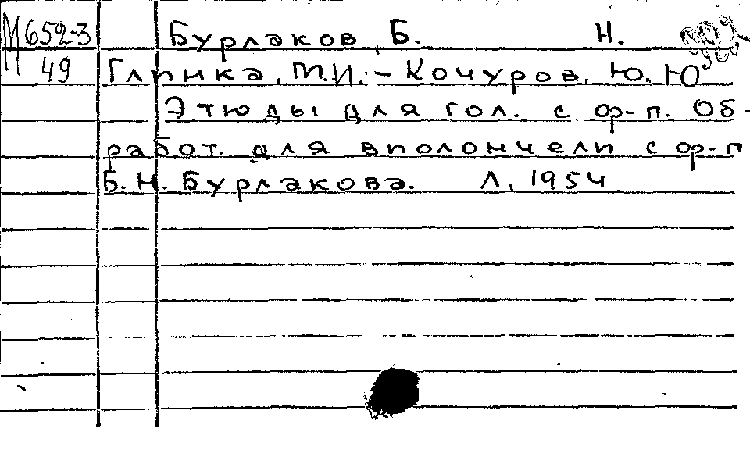 М652-3 Бурлаков, Б. Н.
49 Глинка, М.И. - Кочуров, Ю. Ю
Этюды для гол. с ф-п. Об-
работ. для виолончели с ф-п
Б.Н. Бурлакова. Л, 1954